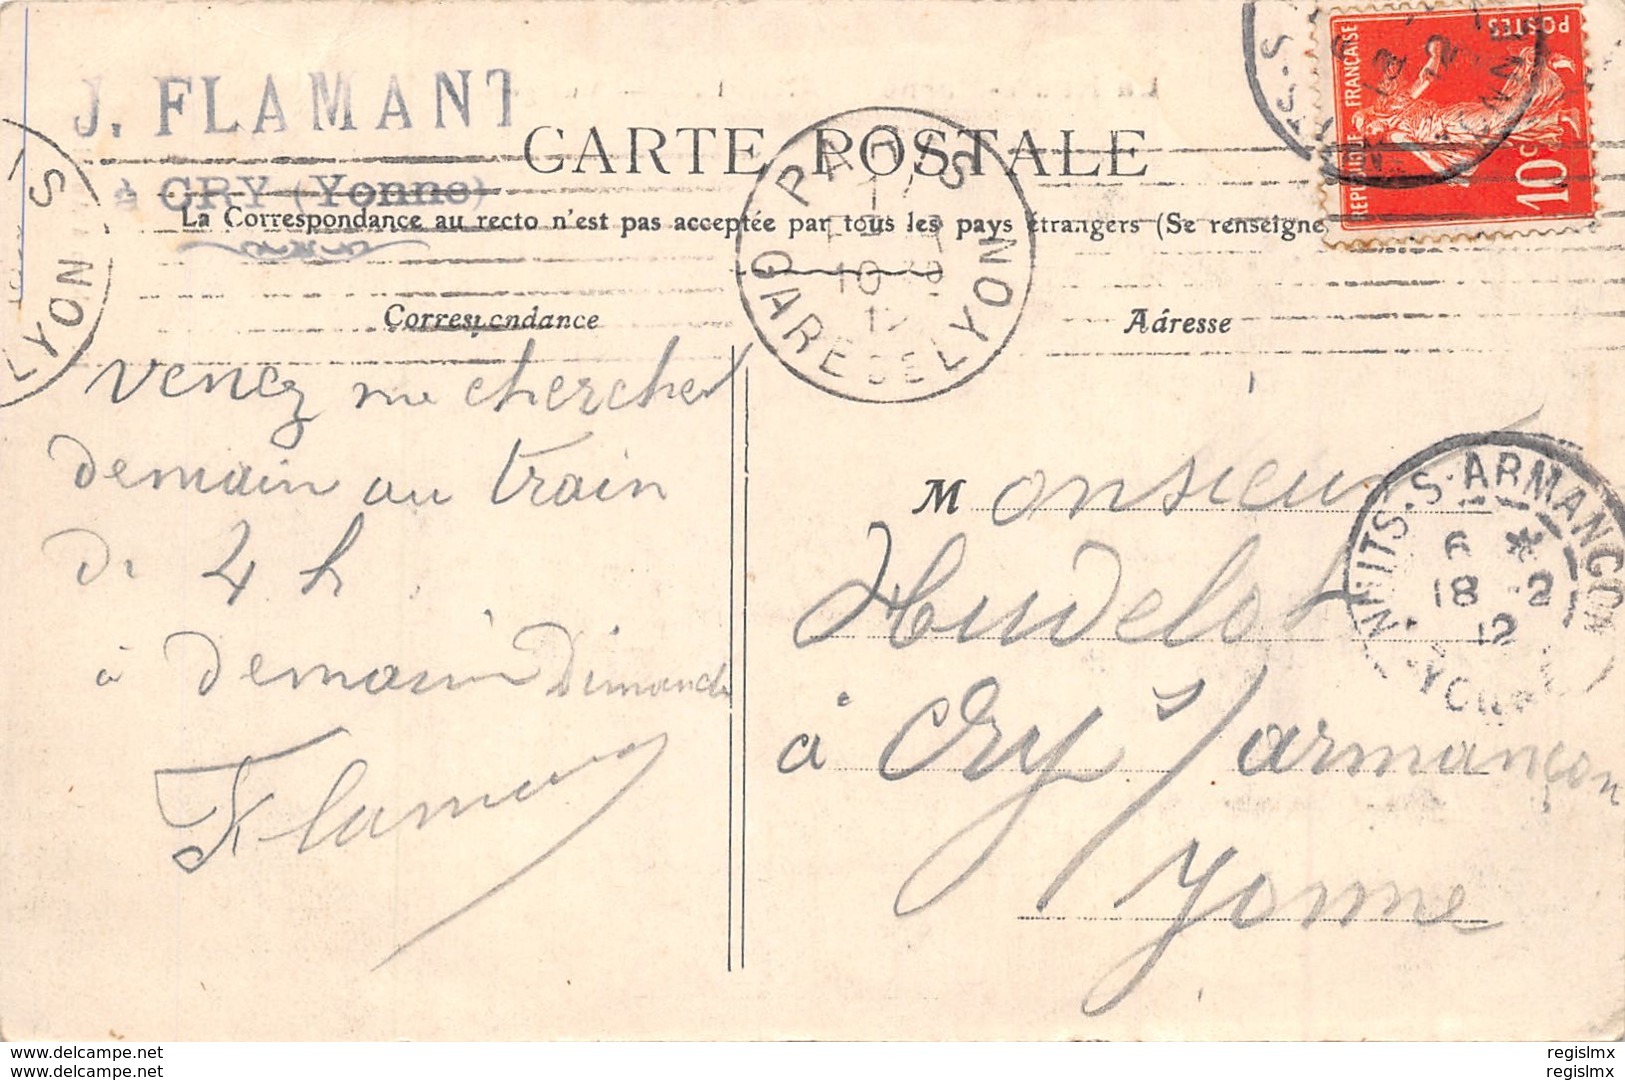 J. FLAMANT
à CRY (Yonne)
CARTE POSTALE
La Correspondance au recto n'est pas acceptée par tous les pays étrangers (Se renseigne
Correspondance
Adresse
REPUBLIQUE FRANÇAISE
POSTES
10c
PARIS
10
12
GARE DE LYON
S
LYON
NUITS-S-ARMANÇON
6 *
18 -2
12
YONNE
venez me chercher
demain au train
de 4 h
à demain Dimanche
Flamant
Monsieur
Hudelot
à Cry s/ armançon
Yonne
www.delcampe.net
www.delcampe.net
regislmx
regislmx